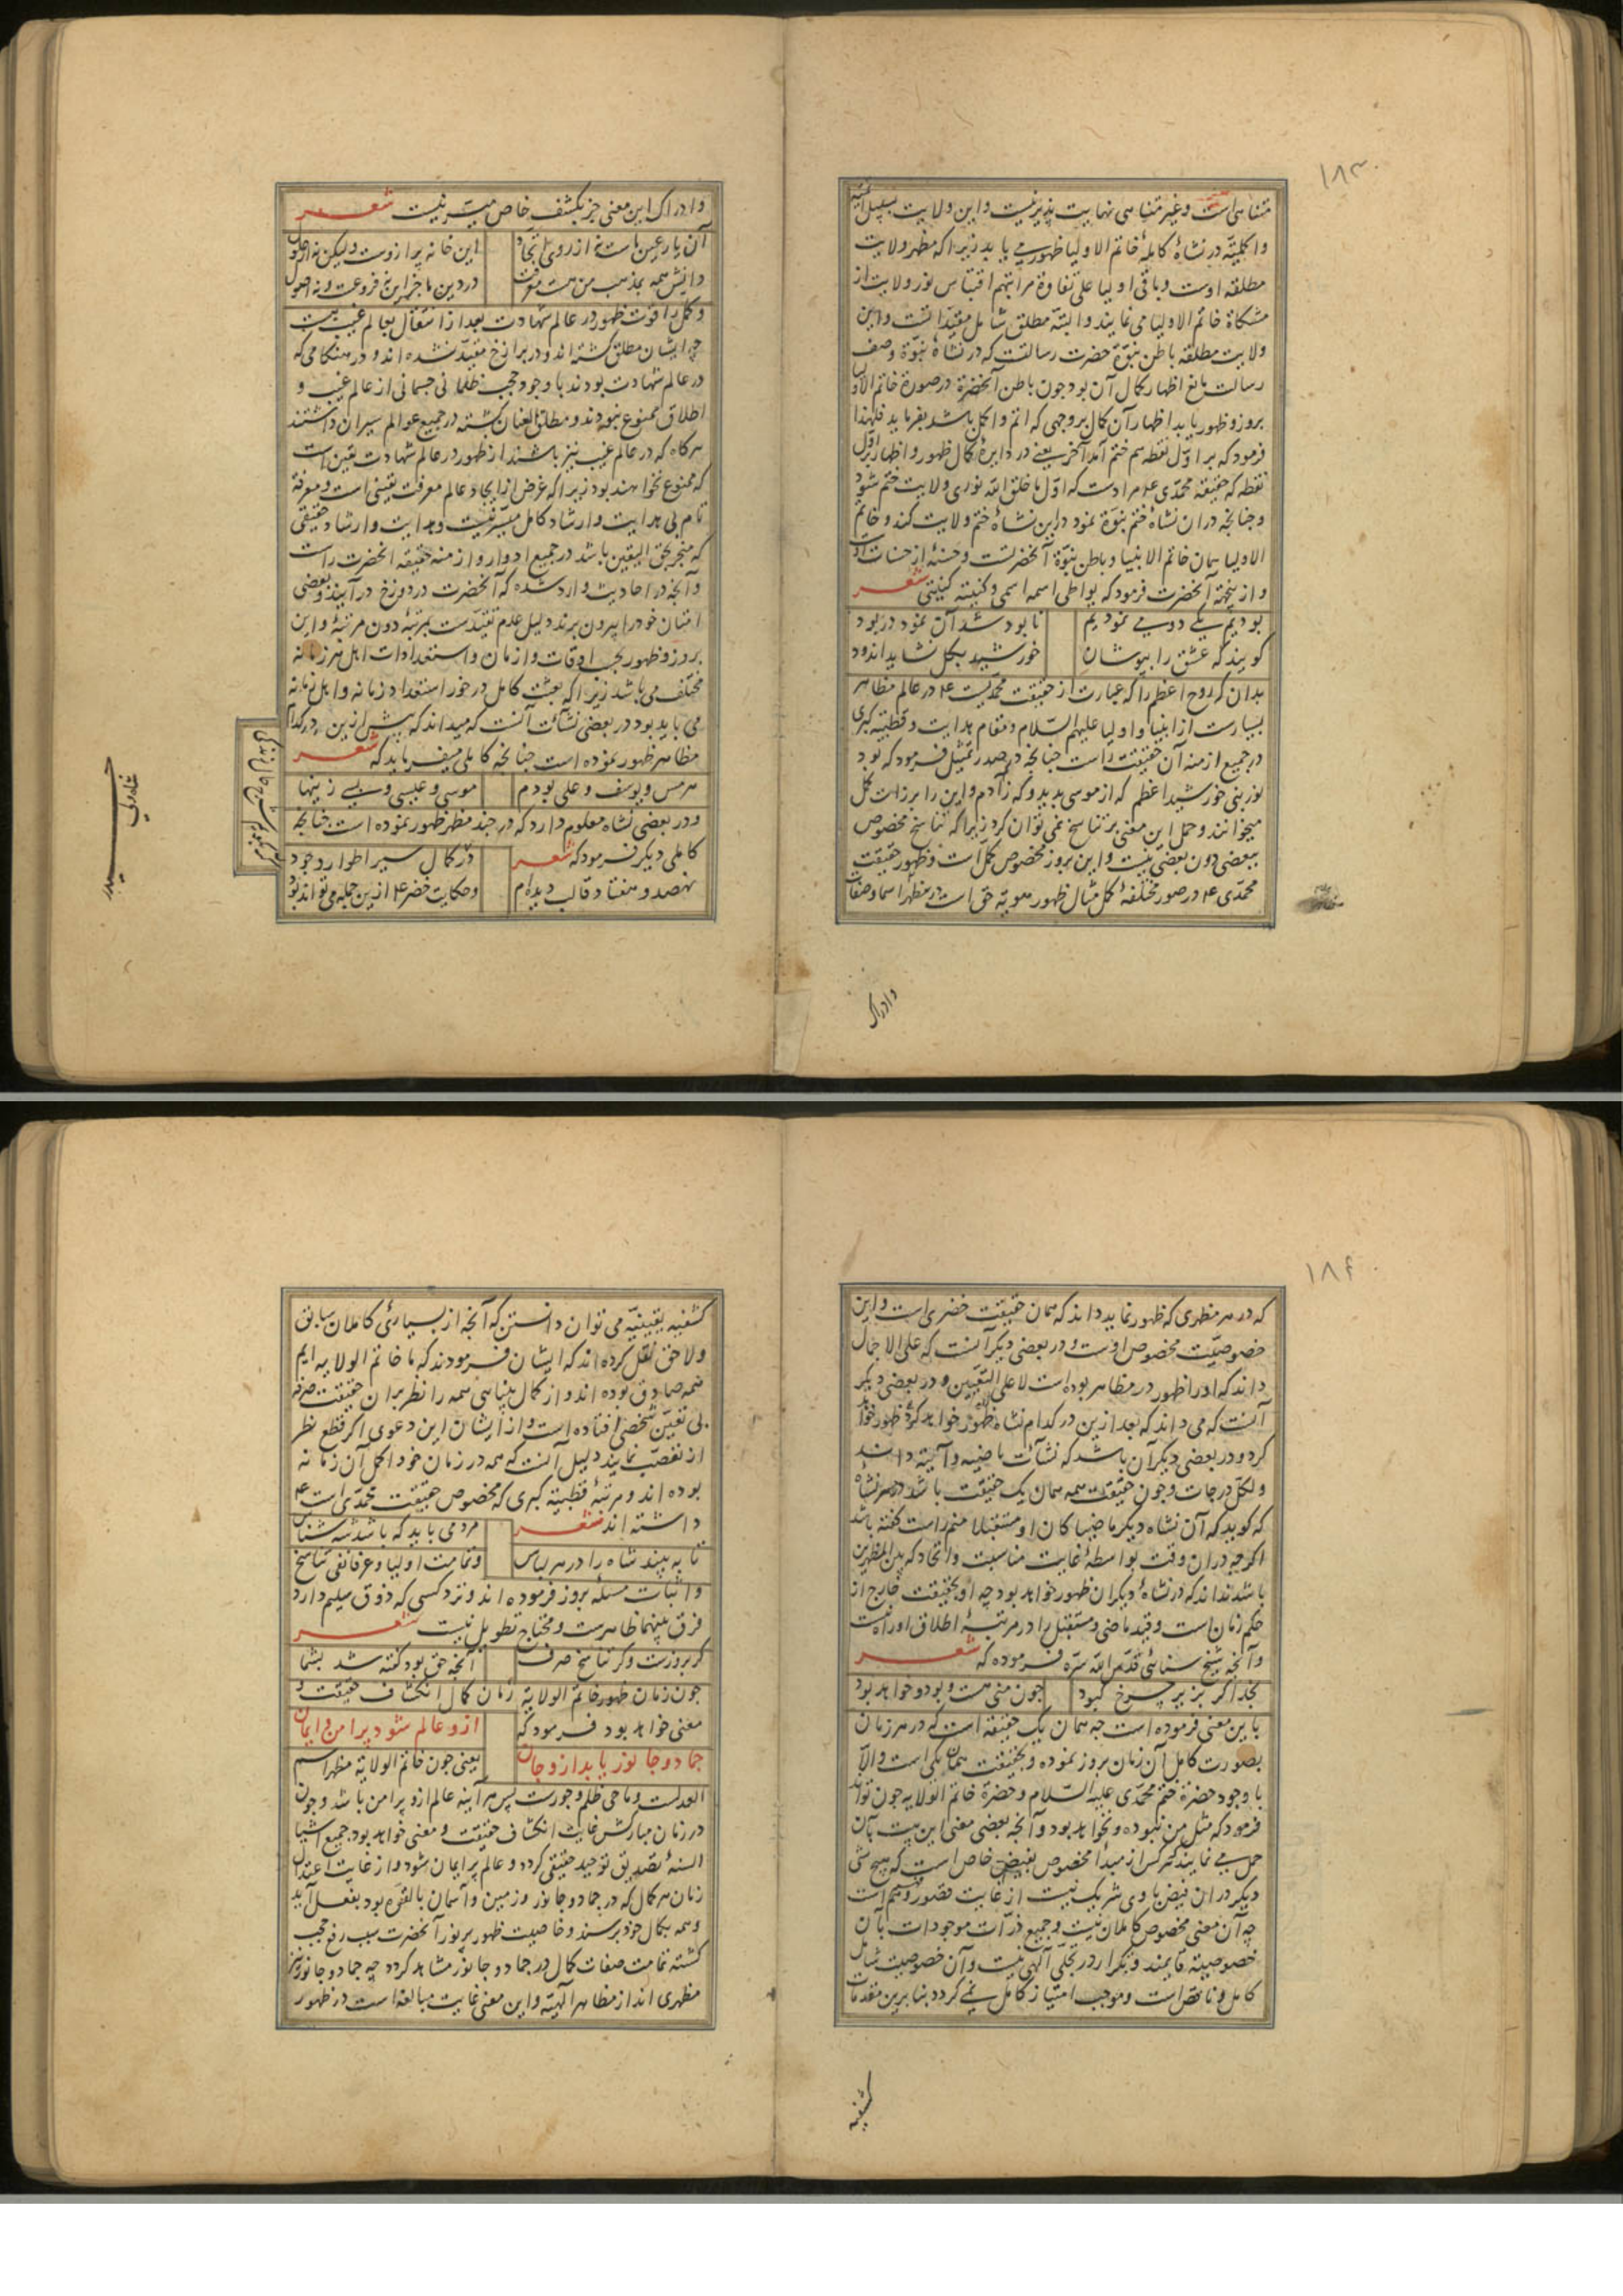 ۱۸۳
متناهی است و غیر متناهی نهایت پذیر نیست و این ولایت بسبیل
و اکملیّة در نشاهٔ کامله خاتم الاولیا ظهور می یابد زیرا که مظهر ولایت
مطلقه اوست و باقی اولیا علی تفاوة مراتبهم اقتباس نور ولایت از
مشکاة خاتم الاولیا می نمایند و البته مطلق شامل مقیّدات است و این
ولایت مطلقه باطن نبوّة حضرت رسالتست که در نشاهٔ نبوّة وصف
رسالت مانع اظهار کمال آن بود چون باطن آنحضرة در صورة خاتم الاولیا
بروز و ظهور یابد اظهار آن کمال بروجهی که اتم و اکمل باشد بفرماید فلهذا
فرمود که بر اوّل نقطه هم ختم آمد آخر یعنی در دایرهٔ کمال ظهور و اظهار اوّل
نقطه که حقیقة محمّدی ع م مرادست که اوّل ما خلق الله نوری ولایت ختم شود
و چنانچه در ان نشاهٔ ختم نبوّة نمود در این نشاهٔ ختم ولایت کند و خاتم
الاولیا همان خاتم الانبیا و باطن نبوّة آنحضرتست و حسنهٔ از حسنات اوست
و از ینجهة آنحضرت فرمود که یواطی اسمه اسمی و کنیته کنیتی شعر
بودیم یکی دو می نمودیم نابود شد آن نمود در بود
گویند که عشق را بپوشان خورشید بگل نشاید اندود
بدان که روح اعظم را که عبارت از حقیقت محمّدیست ع م در عالم مظاهر
بسیارست از انبیا و اولیا علیهم السّلام و مقام هدایت و قطبیّة کبری
در جمیع ازمنه آن حقیقت راست چنانچه در صدر تمثیل فرمود که بود
نور نبی خورشید اعظم که از موسی پدید و که ز آدم و این را برزات کمل
میخوانند و حمل این معنی بر تناسخ نمی توان کرد زیرا که تناسخ مخصوص
ببعضی دون بعضی نیست و این بروز مخصوص کمل است و ظهور حقیقت
محمّدی ع م در صور مختلفهٔ کمل مثال ظهور هویّه حق است در مظهر اسما و صفات
وادراک
وادراک این معنی جز بکشف خاص میسّر نیست شعر
آن یار عین ماست نه از روی اتّحاد این خانه پر ازوست ولیکن نه از حلول
دانش همه بمذهب من هست معرفت در دین ما جز این نه فروعست و نه اصول
و کمل را قوّت ظهور در عالم شهادت بعد از انتقال بعالم غیب هست
چه ایشان مطلق گشته اند و در برازخ مقیّد نشده اند و در هنگامی که
در عالم شهادت بودند با وجود حجب ظلمانی جسمانی از عالم غیب و
اطلاق ممنوع نبوده اند و مطلق العنان گشته در جمیع عوالم سیران داشتند
هرگاه که در عالم غیب نیز باشند از ظهور در عالم شهادت یقین است
که ممنوع نخواهند بود زیرا که غرض از ایجاد عالم معرفت یقینی است و معرفة
تام بی هدایت و ارشاد کامل میسّر نیست و هدایت و ارشاد حقیقی
که منجر بحق الیقین باشد در جمیع ادوار و ازمنه حقیقة آنحضرت راست
و آنچه در احادیث وارد شده که آنحضرت در دوزخ در آیند و بعضی
امّتان خود را بیرون برند دلیل عدم تقیّدست بمرتبهٔ دون مرتبهٔ و این
بروز و ظهور بحسب اوقات و ازمان و استعدادات اهل هر زمانه
مختلف می باشد زیرا که بعثت کامل در خور استعداد زمانه و اهل زمانه
می باید بود در بعضی نشاءت آنست که میداند که پیش ازین در کدام
مظاهر ظهور نموده است چنانچه کاملی میفرماید که شعر
هرمس و یوسف و علی بودم موسی و عیسی و
و در بعضی نشاه معلوم دارد که در چند مظهر ظهور نموده است چنانچه
کاملی دیگر فرمود که شعر در کمال سیر اطوار وجود
نهصد و هفتاد قالب دیده ام و حکایت خضر ع م ازین جمله می تواند بود
۱۸۴
که در هر مظهری که ظهور نماید داند که همان حقیقت خضری است و این
خصوصیّت مخصوص اوست و در بعضی دیگر آنست که علی الاجمال
داند که او را ظهور در مظاهر بوده است لا علی التعیین و در بعضی دیگر
آنست که می داند که بعد ازین در کدام نشاه ظهور خواهد کرد
کرد و در بعضی دیگر آن باشد که نشاءت ماضیه و آتیه داند
و لکل درجات و چون حقیقت همه همان یک حقیقت باشد در هر نشاهٔ
که گوید که آن نشاه دیگر ماضیا کان او مستقبلا منم راست گفته باشد
اگرچه در ان وقت بواسطهٔ غایت مناسبت و اتحاد که بین المظهرین
باشد نداند که در نشاهٔ دیگر ان ظهور خواهد بود چه او بحقیقت خارج از
حکم زمان است و قید ماضی و مستقبل را در مرتبهٔ اطلاق او راه نیست
و آنچه شیخ سنائی قدّس الله سرّه فرموده که شعر
بخدا گر بزیر چرخ کبود چون منی هست و بود و خواهد بود
باین معنی فرموده است چه همان یک حقیقة است که در هر زمان
بصورت کامل آن زمان بروز نموده و بحقیقت همان یکی است و الّا
با وجود حضرة ختم محمّدی علیه السّلام و حضرة خاتم الولایه چون تواند
فرمود که مثل من نبوده و نخواهد بود و آنچه بعضی معنی این بیت بآن
حمل می نمایند که هر کس از مبدأ مخصوص بفیض خاص است که هیچ شی
دیگر در ان فیض با وی شریک نیست از غایت قصور فهم است
چه آن معنی مخصوص کاملان نیست و جمیع ذرّات موجودات بآن
خصوصیّة قایمند و تکرار در تجلّی الهی نیست و آن خصوصیت شامل
کامل و ناقص است و موجب امتیاز کامل نمی گردد بنابرین مقدمات
کشفیه
کشفیه یقینیّه می توان دانستن که آنچه از بسیاری کاملان سابق
و لاحق نقل کرده اند که ایشان فرمودند که ما خاتم الولایه ایم
همه صادق بوده اند و از کمال شناسی همه را نظر بر ان حقیقت صرفه
بی تعیّن شخصی افتاده است و از ایشان این دعوی اگر قطع نظر
از تعصّب نمایند دلیل آنست که همه در زمان خود اکمل آن زمانه
بوده اند و مرتبهٔ قطبیّة کبری که مخصوص حقیقت محمّدی است ع م
داشته اند شعر مردمی باید که باشد شه شناس
تا به بیند شاه را در هر لباس و تمامت اولیا و عرفا نفی تناسخ
و اثبات مسئلهٔ بروز فرموده اند و نزد کسی که ذوق سلیم دارد
فرق بینهما ظاهرست و محتاج تطویل نیست شعر
گر بروزست و گر تناسخ صرف آنچه حق بود گفته شد بشما
چون زمان ظهور خاتم الولایه زمان کمال انکشاف حقیقت و
معنی خواهد بود فرمود که ازو عالم شود پر امن و ایمان
جماد و جانور یابد ازو جان یعنی چون خاتم الولایة مظهر اسم
العدلست و ماحی ظلم و جورست پس هر آینه عالم ازو پر امن باشد و چون
در زمان مبارکش غایت انکشاف حقیقت و معنی خواهد بود جمیع اشیا
السنهٔ تصدیق توحید حقیقی گردد و عالم پر ایمان شود و از غایت اعتدال
زمان هر کمال که در جماد و جانور و زمین و آسمان بالقوّه بود بفعل آید
و همه بکمال خود برسند و خاصیت ظهور پر نور آنحضرت سبب رفع حجب
گشته تمامت صفات کمال در جماد و جانور مشاهد گردد چه جماد و جانور نیز
مظهری اند از مظاهر الهیّه و این معنی غایت مبالغه است در ظهور